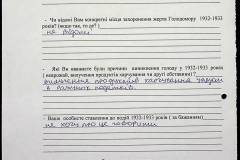 - Чи відомі Вам конкретні місця захоронення жертв Голодомору 1932-1933
років? (якщо так, то де?)
не відомі
- Які Ви вважаєте були причини виникнення голоду у 1932-1933 роках
(неврожай, вилучення продуктів харчування чи другі обставини)?
вилучення продуктів харчування
податків
Ваше особисте ставлення до подій 1932-1933 років (за бажанням)
не хочу про це говорити